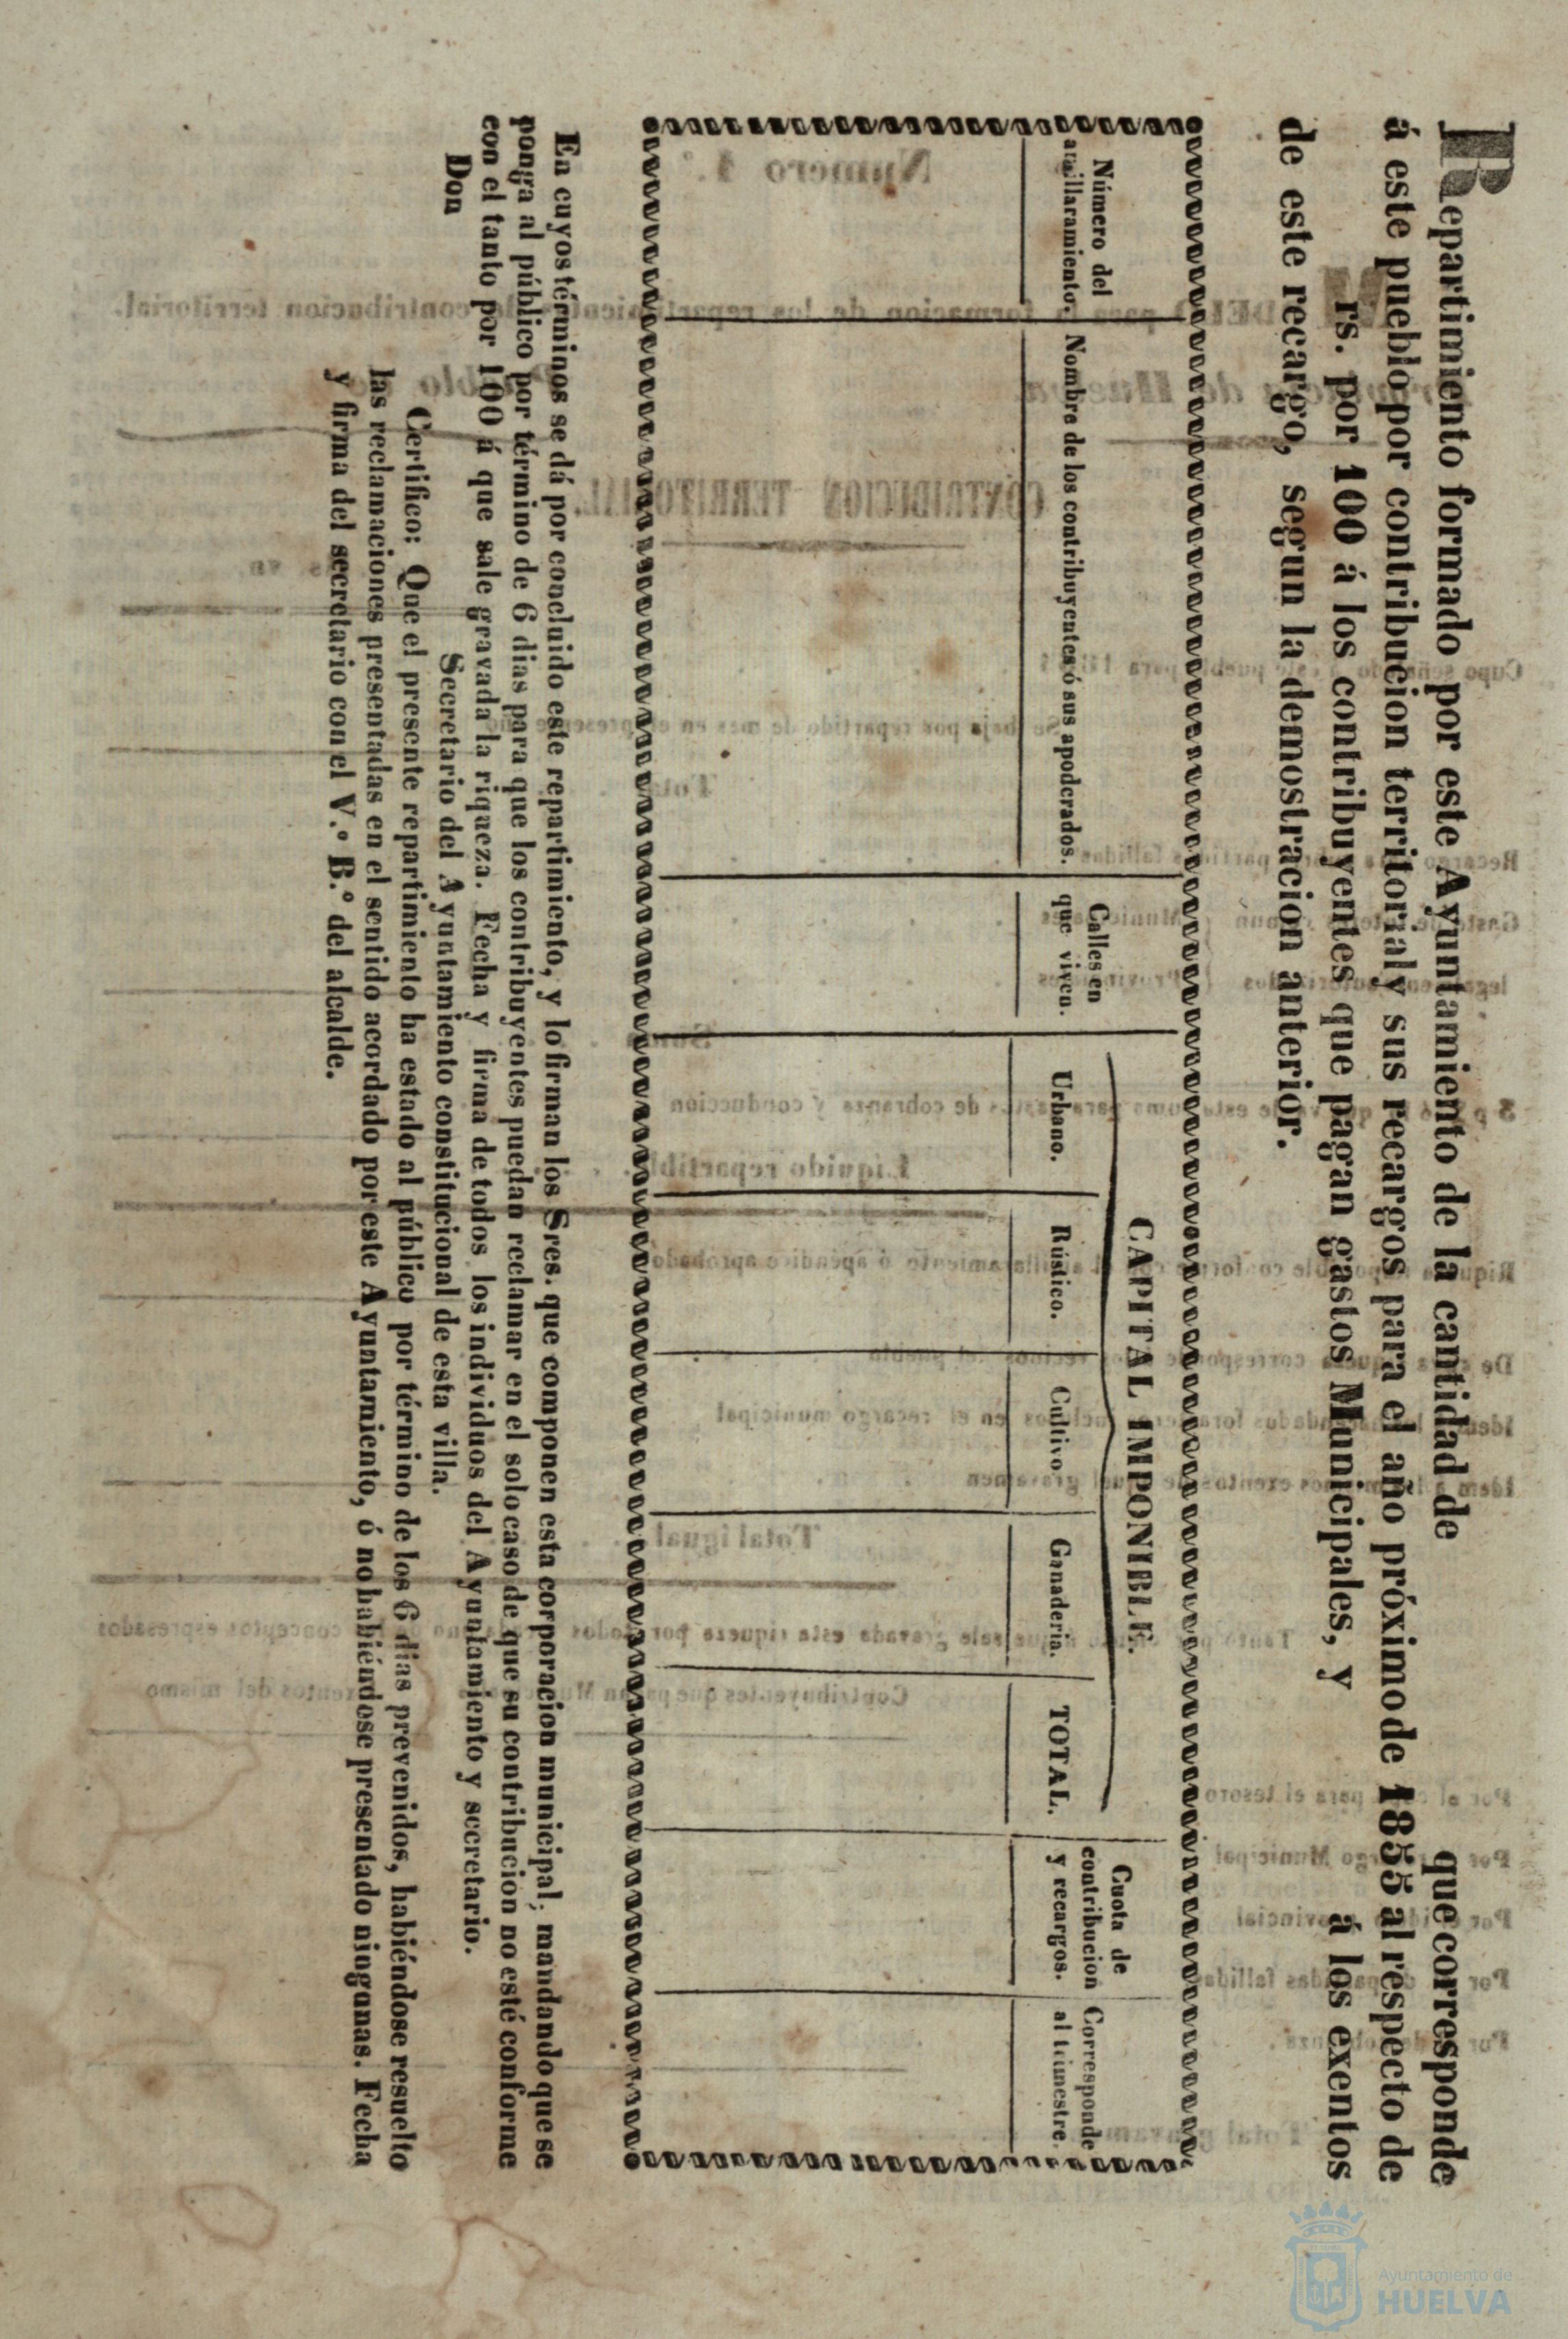 Repartimiento formado por este Ayuntamiento de la cantidad de que corresponde
á este pueblo por contribucion territorial y sus recargos para el año próximo de 1855 al respecto de
rs. por 100 á los contribuyentes que pagan gastos Municipales, y á los exentos
de este recargo, segun la demostracion anterior.
CAPITAL IMPONIBLE.
Número del
amillaramiento.
Nombre de los contribuyentes ó sus apoderados.
Calles en
que viven.
Urbano.
Rústico.
Cultivo.
Ganaderia.
TOTAL.
Cuota de
contribucion
y recargos.
Corresponde
al trimestre.
En cuyos términos se dá por concluido este repartimiento, y lo firman los Sres. que componen esta corporacion municipal; mandando que se
ponga al público por término de 6 dias para que los contribuyentes puedan reclamar en el solo caso de que su contribucion no esté conforme
con el tanto por 100 á que sale gravada la riqueza. Fecha y firma de todos los individuos del Ayuntamiento y secretario.
Don Secretario del Ayuntamiento constitucional de esta villa.
Certifico: Que el presente repartimiento ha estado al público por término de los 6 dias prevenidos, habiéndose resuelto
las reclamaciones presentadas en el sentido acordado por este Ayuntamiento, ó no habiéndose presentado ningunas. Fecha
y firma del secretario con el V.º B.º del alcalde.
Ayuntamiento de
HUELVA